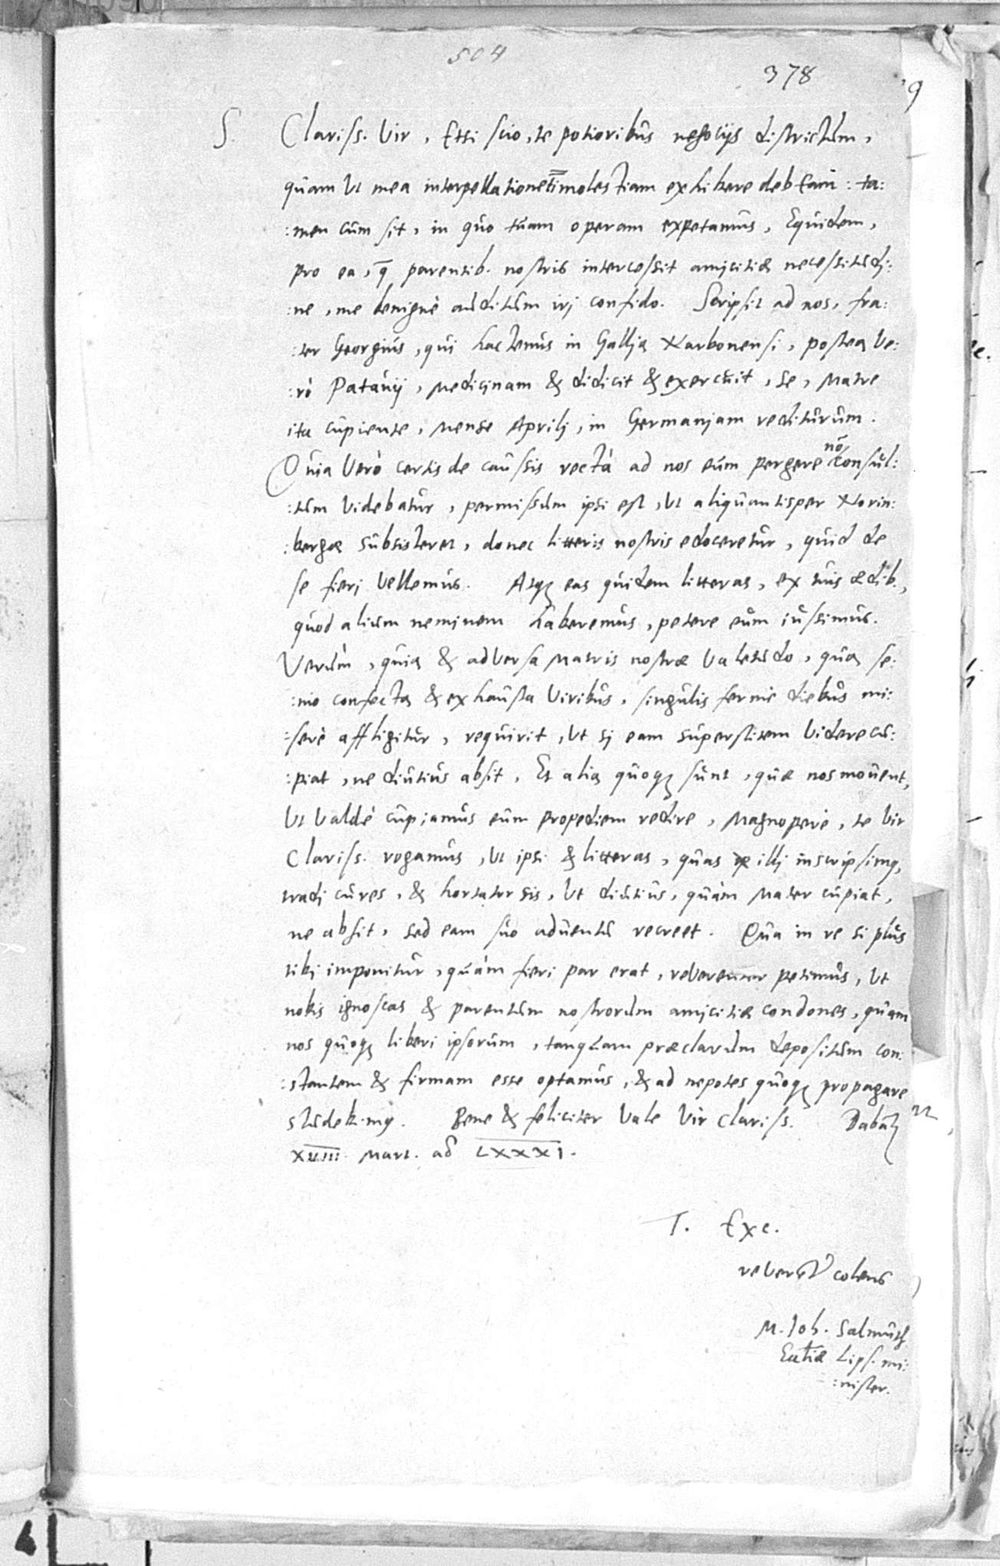 504
378
S. Clariss. Vir, Etsi scio, te potioribus negocijs districtum,
quam ut mea interpellatione tibi molestiam exhibere debeam: ta:
:men cum sit, in quo tuam operam expetamus, Equidem,
pro ea, q̃ parentib. nostris intercessit amicitiæ necessitudi:
:ne, me benignè auditum irj confido. Scripsit ad nos, fra:
:ter Georgius, qui hactenus in Gallia Narbonensi, postea ve:
:rò Patauij, Medicinam & didicit & exercuit, se, Matre
ita cupiente, mense Aprilj, in Germaniam rediturum.
Quia verò certis de caussis rectà ad nos eum pergere nõ consul:
:tum videbatur, permissum ipsi est, ut aliquantisper Norin:
:bergæ subsisteret, donec litteris nostris edoceretur, quid de
se fieri vellemus. Atq; eas quidem litteras, ex tuis ædib.,
quod alium neminem haberemus, petere eum iussimus.
Verùm, quia & adversa Matris nostræ valetudo, quæ se:
:nio confecta & exhausta viribus, singulis fermè diebus mi:
:serè affligitur, requirit, ut si eam superstitem videre cu:
:piat, ne diutius absit, Et alia quoq; sunt, quæ nos mouent,
ut valdè cupiamus eum propediem redire, Magnoperè, te vir
Clariss. rogamus, ut ipsi & litteras, quas illj inscripsimq,
tradi cures, & hortator sis, ut diutius, quàm Mater cupiat,
ne absit, sed eam suo aduentu recreet. Qua in re si plus
tibi imponitur, quàm fieri par erat, reverenter petimus, ut
nobis ignoscas & parentum nostrorum amicitiæ condones, quam
nos quoq; liberi ipsorum, tanquam præclarum depositum con:
:stantem & firmam esse optamus, & ad nepotes quoq; propagare
studebimq. Bene & feliciter vale Vir clariss. Dabat;
XVIII Mart. aõ LXXXI.
T. Exc.
reverent̃ colens
M. Joh. Salmuth
Eccl̃iæ Lips. mi:
:nister.